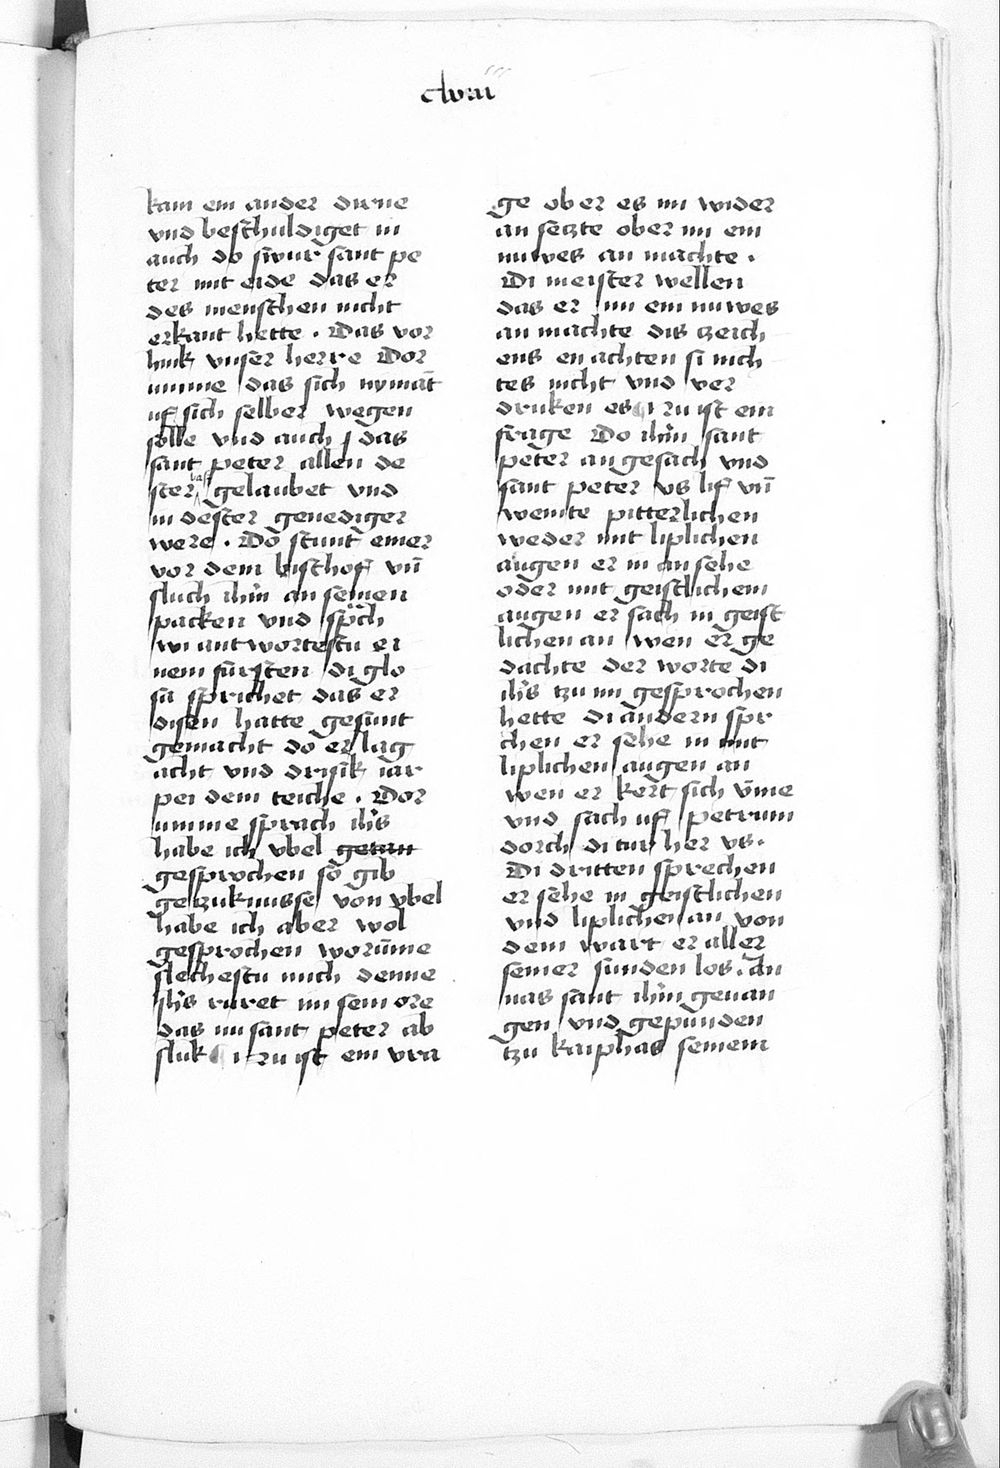 clviii
kam ein ander dirne
vnd beschuldiget in
auch do swur sant pe
ter mit eide das er
des menschen nicht
erkant hette . Das vor
hink vnser herre Dor
umme das sich nymāt
uf sich selber wegen
solle vnd auch das
sant peter allen de
ster bas gelaubet vnd
in dester genediger
were . Do stunt einer
vor dem bischof vn̄
sluch ihm an seinen
packen vnd sprach
wi antwortestu ei
nem fürsten di glo
sa sprichet das er
disen hatte gesunt
gemacht do er lag
acht vnd drisik iar
pei dem teiche . Dor
umme sprach ihs
habe ich vbel getan
gesprochen so gib
getzuknusse von vbel
habe ich aber wol
gesprochen worūme
slechestu mich denne
ihs ruret im sein ore
das im sant peter ab
sluk Hi tzu ist ein vra
ge ob er es im wider
an setzte ober im ein
nuwes an machte .
Di meister wellen
das er im ein nuwes
an machte dis tzeich
ens en achten si nich
tes nicht vnd ver
druken es Hi tzu ist ein
frage Do ihm sant
peter an gesach vnd
sant peter vs lif vn̄
weinte pitterlichen
weder mit liplichen
augen er in an sehe
oder mit geistlichem
augen er sach in geist
lichen an wen er ge
dachte der worte di
ihs tzu im gesprochen
hette di andern spre
chen er sehe in mit
liplichen augen an
wen er kert sich vme
vnd sach uf petrum
dorch di tur her vs .
Di dritten sprechen
er sehe in geistlichen
vnd liplichen an von
dem wart er aller
seiner sunden los . An
nas sant ihm geuan
gen vnd gepunden
tzu kaiphas seinem